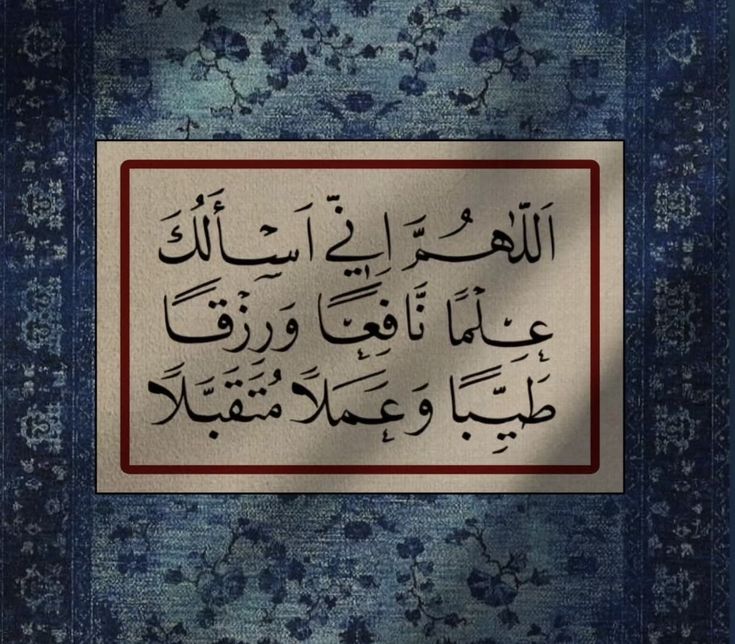 اَللّٰهُمَّ اِنِّي اَسْأَلُكَ
عِلْمًا نَّافِعًا وَرِزْقًا
طَيِّبًا وَعَمَلًا مُتَقَبَّلًا